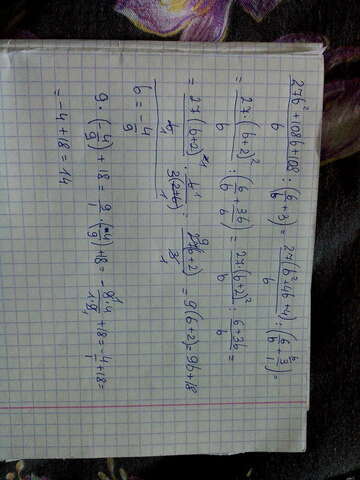 27b²+108b+108/b : (6/b+3) = 27(b²+4b+4)/b : (6/b+3/1) =
= 27·(b+2)²/b : (6/b+3b/b) = 27(b+2)²/b : 6+3b/b =
= 27(b+2)²/b · b/3(2+b) = 27(b+2)/3 = 9(b+2)=9b+18
b = -4/9
9·(-4/9)+18 = 9/1·(-4/9)+18 = -9·4/1·9+18 = -4/1+18=
= -4+18=14